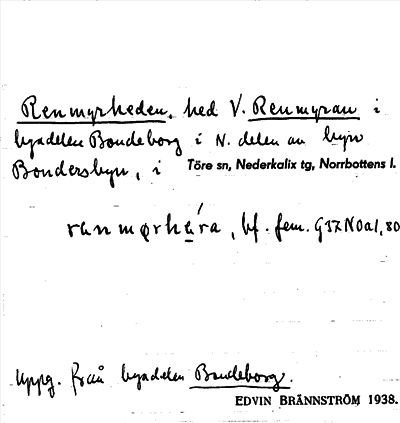 Renmyrheden, hed V. Renmyran i
byadelen Bondeborg i N. delen av byn
Bondersbyn, i Töre sn, Nederkalix tg, Norrbottens l.
bf. fem.
Uppg. från byadelen Bondeborg.
EDVIN BRÄNNSTRÖM 1938.